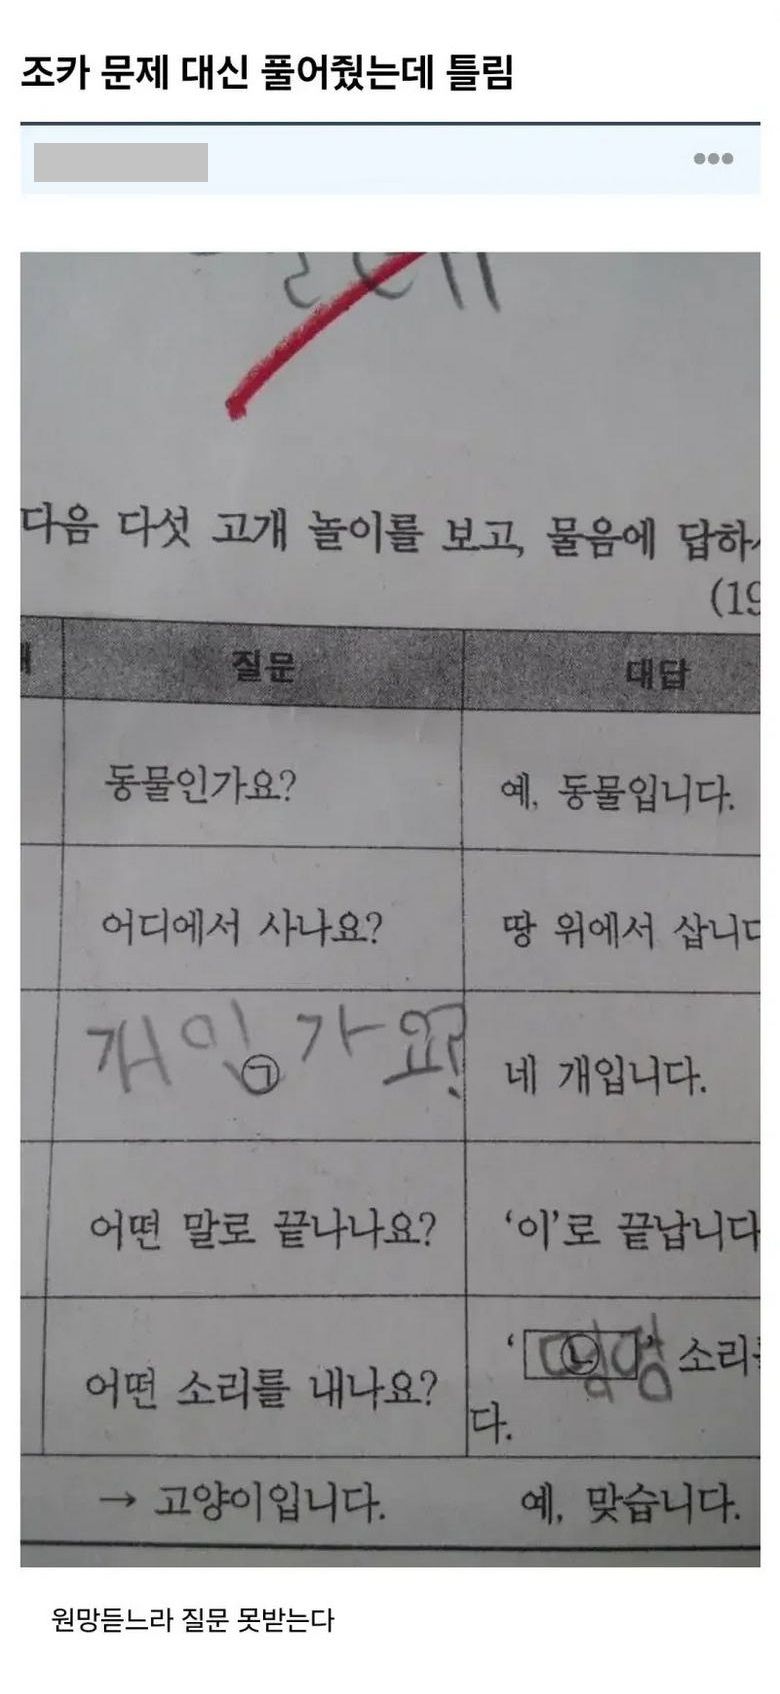 조카 문제 대신 풀어줬는데 틀림
다음 다섯 고개 놀이를 보고, 물음에 답하
(19
질문 대답
동물인가요? 예, 동물입니다.
어디에서 사나요? 땅 위에서 삽니다
개인가요? ㉠ 네 개입니다.
어떤 말로 끝나나요? ‘이’로 끝납니다
어떤 소리를 내나요? ‘㉡멍멍’ 소리를
다.
→ 고양이입니다. 예, 맞습니다.
원망듣느라 질문 못받는다